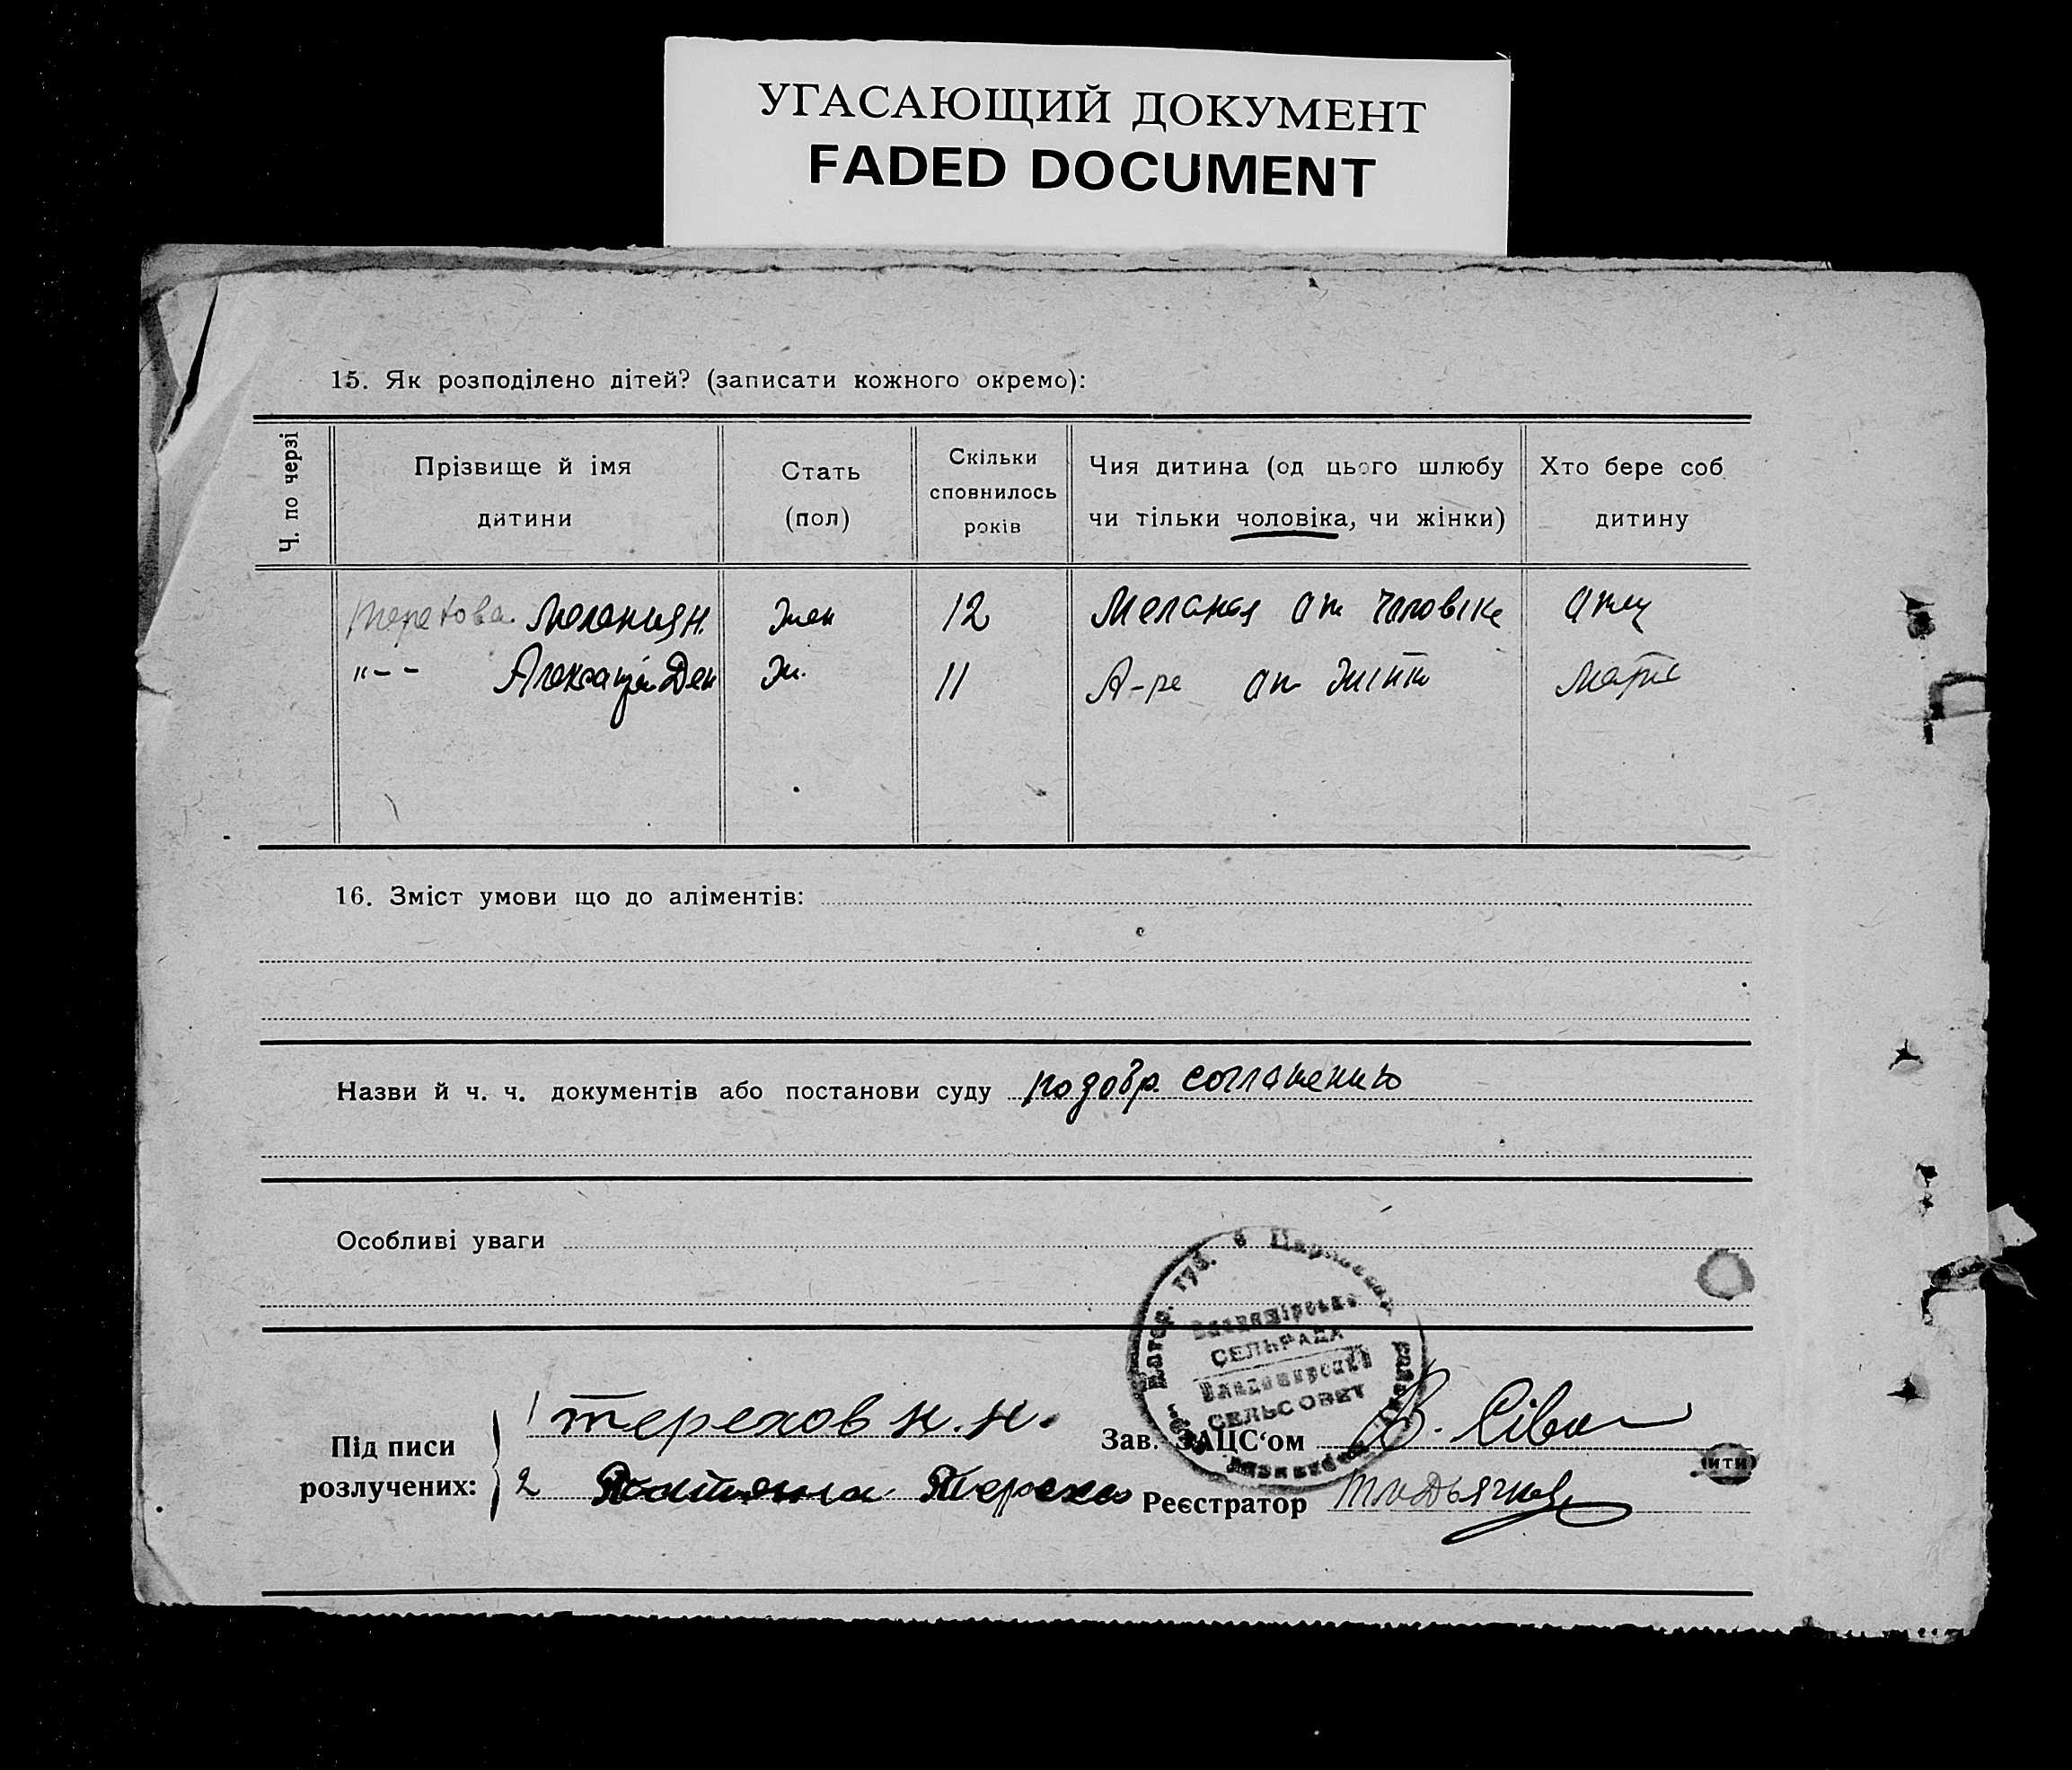 УГАСАЮЩИЙ ДОКУМЕНТ
FADED DOCUMENT
15. Як розподілено дітей? (записати кожного окремо):
Ч. по черзі
Прізвище й імя дитини
Стать (пол)
Скільки сповнилось років
Чия дитина (од цього шлюбу чи тільки чоловіка, чи жінки)
Хто бере соб дитину
Терехова Мелания Н. Жен 12 Мелания от чоловіка отец
"-- Ден Ж. 11 от жінки
16. Зміст умови що до аліментів:
Назви й ч. ч. документів або постанови суду по добр. соглашению
Особливі уваги
СЕЛЬРАДА
Владимирский
СЕЛЬСОВЕТ
Під писи розлучених:
1 Терехов Н. Н.
Зав. ЗАЦС‘ом
2 Татьяна
Реєстратор